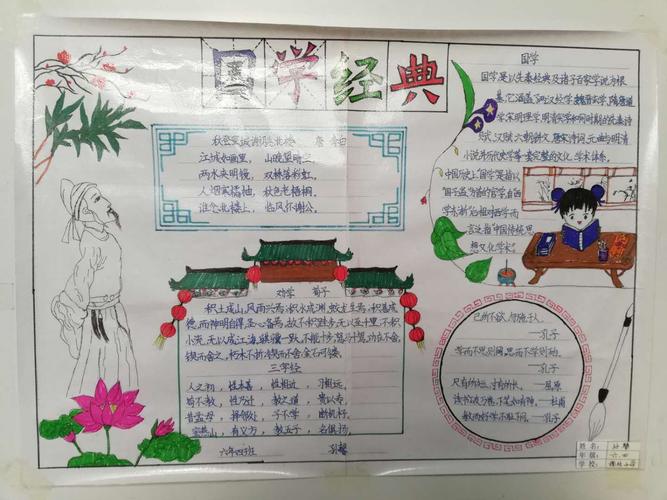 国学经典
秋登宣城谢朓北楼 唐 李白
江城如画里, 山晚望晴空。
两水夹明镜, 双桥落彩虹。
人烟寒橘柚, 秋色老梧桐。
谁念北楼上, 临风怀谢公。
劝学 荀子
积土成山,风雨兴焉;积水成渊,蛟龙生焉;积善成
德,而神明自得,圣心备焉。故不积跬步,无以至千里;不积
小流,无以成江海。骐骥一跃,不能十步;驽马十驾,功在不舍。
锲而舍之,朽木不折;锲而不舍,金石可镂。
三字经
人之初, 性本善, 性相近, 习相远。
苟不教, 性乃迁, 教之道, 贵以专。
昔孟母, 择邻处, 子不学, 断机杼。
窦燕山, 有义方, 教五子, 名俱扬。
六年四班
国学
国学是以先秦经典及诸子百家学说为根
基,它涵盖了两汉经学、魏晋玄学、隋唐道
学、宋明理学、明清实学和同时期的先秦诗
赋、汉赋、六朝骈文、唐宋诗词、元曲与明清
小说并历代史学等一套完整的文化、学术体系。
中国历史上"国学"是指以
"国子监"为首的官学,自西
学东渐后相对西学而
言泛指"中国传统思
想文化学术"。
己所不欲,勿施于人。
——孔子
学而不思则罔,思而不学则殆。
——孔子
尺有所短,寸有所长。——屈原
读书破万卷,下笔如有神。——杜甫
敏而好学,不耻下问。——孔子
姓名:
年级:六.四
学校: